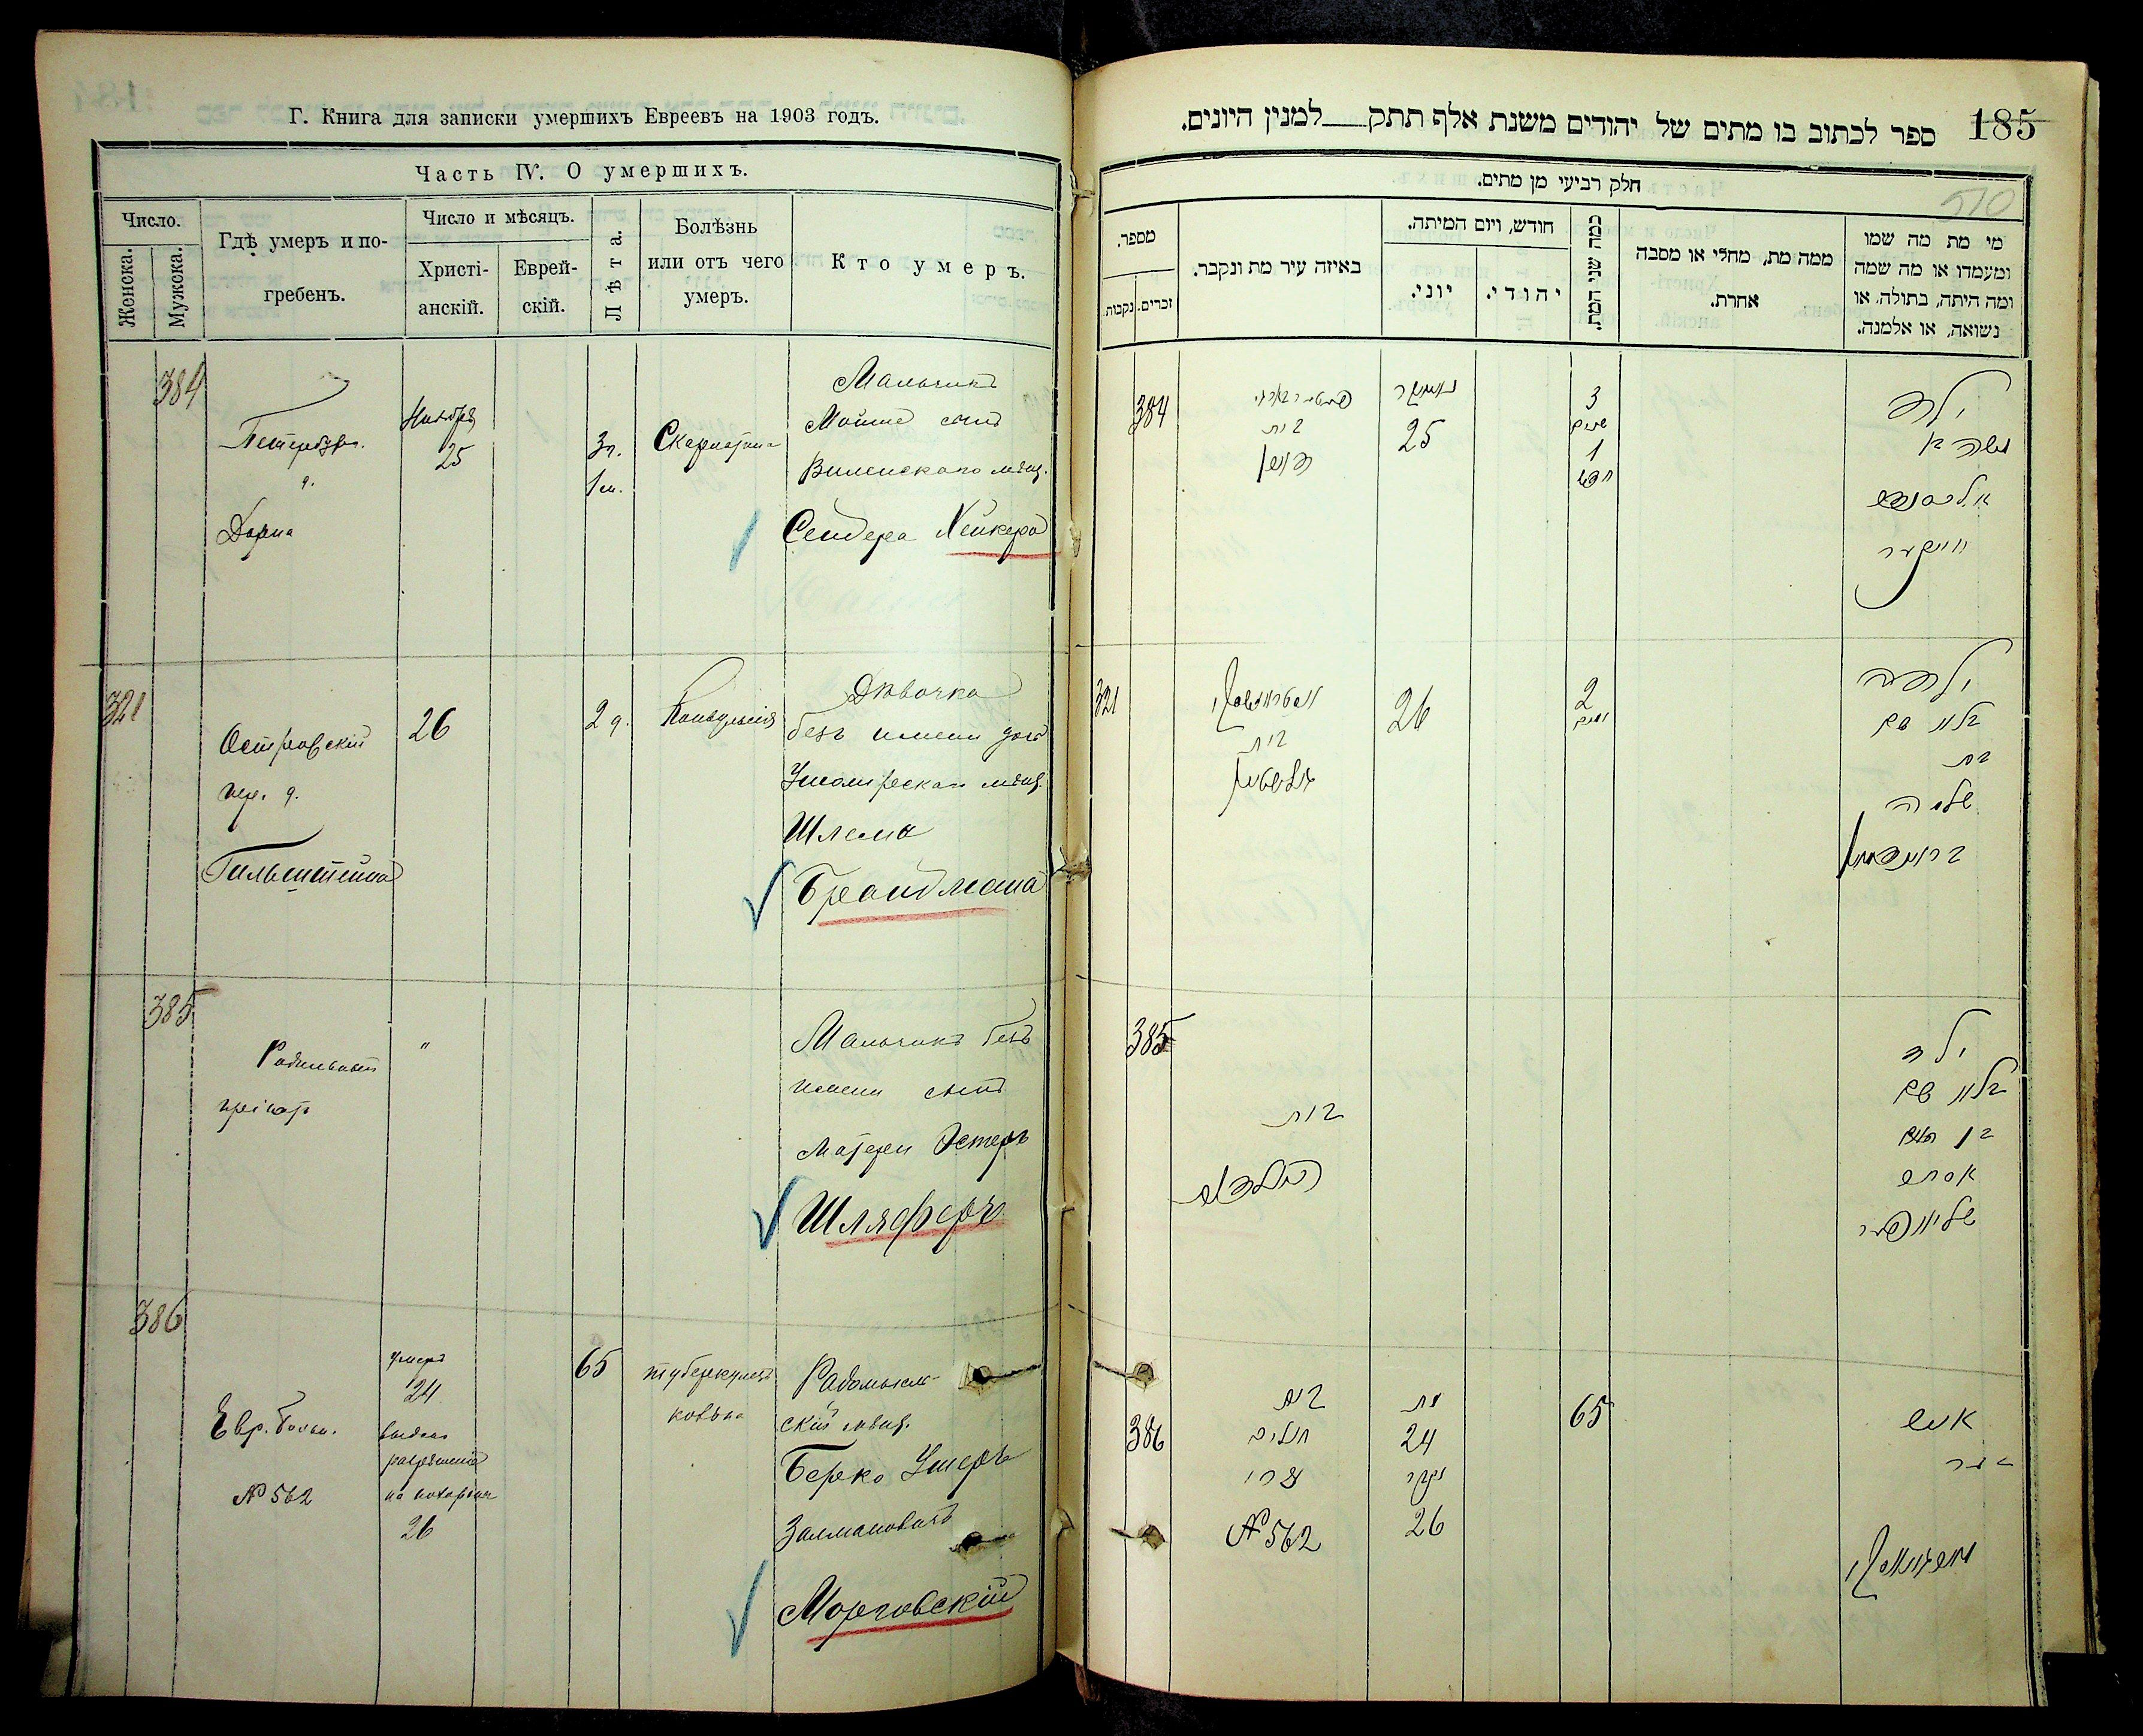 Г. Книга для записки умершихъ Евреевъ на 1903 годъ.
Часть IV. О умершихъ.
Число.
Женска.
Мужска.
Гдѣ умеръ и по-
гребенъ.
Число и мѣсяцъ.
Христі-
анскій.
Еврей-
скій.
Лѣта.
Болѣзнь
или отъ чего
умеръ.
Кто умеръ.
384
Петербург.
д.
Дорна
Ноября
25
3 г.
1 м.
Скарлатина
Мальчикъ
Мойше сынъ
Виленскаго мѣщ.
Сендера Хейкера
321
Островскій
пер. д.
Гильштейна
26
2 д.
Конвульсія
Дѣвочка
безъ имени дочь
мѣщ.
Шлема
Брандмана
385
"
Мальчикъ безъ
имени сынъ
матери Эстеръ
Шляферъ
386
Евр. больн.
№ 562
умеръ
24
на похороны
26
65
туберкулезъ
Радомысль-
скій мѣщ.
Берко Ушеръ
Залмановичъ
Морговскій
185
ספר לכתוב בו מתים של יהודים משנת אלף תתק___למנין היונים.
510
חלק רביעי מן מתים.
מספר.
נקבות.
זכרים.
באיזה עיר מת ונקבר.
חודש, ויום המיתה.
יוני.
יהודי.
כמה שני המת.
ממה מת, מחלי או מסבה
אחרת.
מי מת מה שמו
ומעמדו או מה שמה
ומה היתה, בתולה, או
נשואה, או אלמנה.
384
בית
דארן
נאיאבר
25
3
שנים
1
חדש
ילד
משה בן
אלכסנדר
הייקער
321
בית
גילשטיין
26
2
ימים
ילדה
בלי שם
בת
שלמה
בראנדמאן
385
בית
ילד
בלי שם
בן האם
אסתר
שליאפער
386
בית
חולים
עברי
№ 562
מת
24
נקבר
26
65
איש
בער
מארגאווסקי